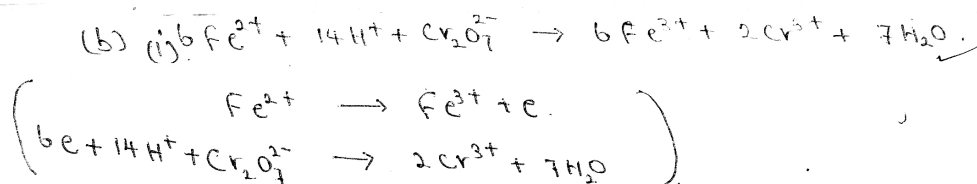 (b) (i) 6 Fe²⁺ + 14 H⁺ + Cr₂O₇²⁻ → 6 Fe³⁺ + 2 Cr³⁺ + 7 H₂O.
Fe²⁺ → Fe³⁺ + e.
6e + 14 H⁺ + Cr₂O₇²⁻ → 2 Cr³⁺ + 7 H₂O